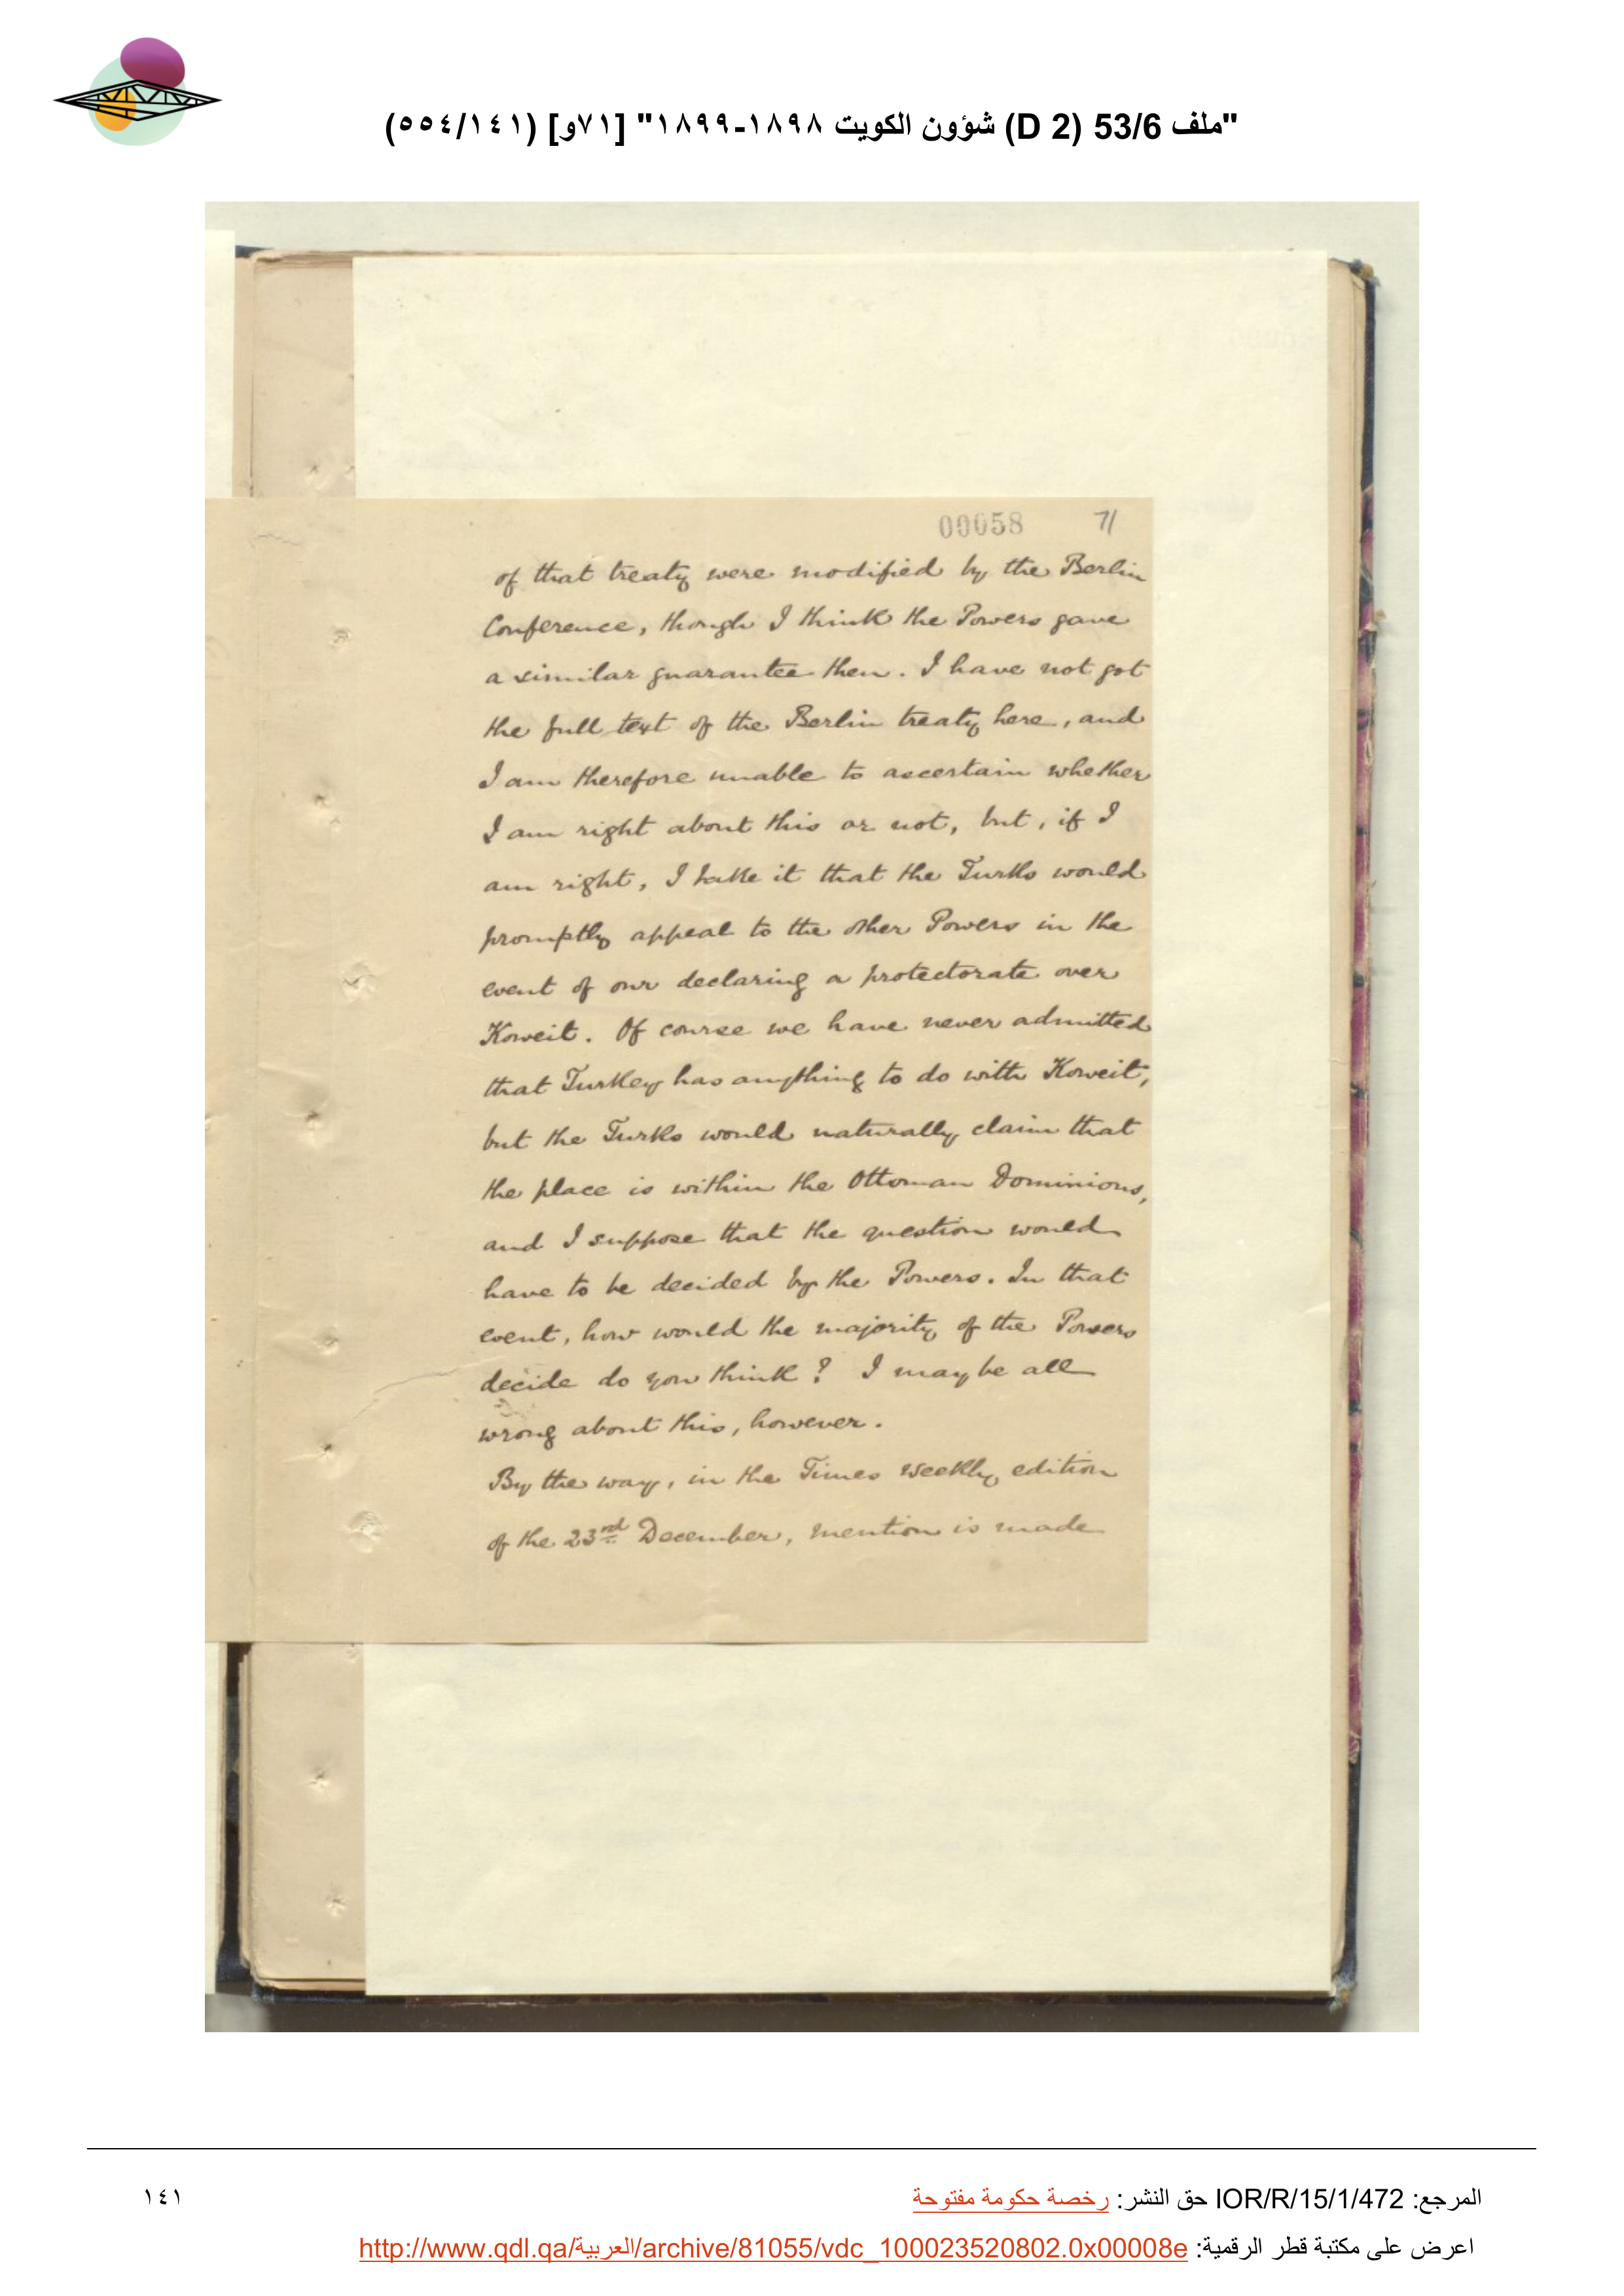 "ملف 53/6 (D 2) شؤون الكويت ١٨٩٨-١٨٩٩" [٧١و] (٥٥٤/١٤١)
00058 71
of that treaty were modified by the Berlin
Conference, though I think the Powers gave
a similar guarantee then. I have not got
the full text of the Berlin treaty here, and
I am therefore unable to ascertain whether
I am right about this or not, but, if I
am right, I take it that the Turks would
promptly appeal to the other Powers in the
event of our declaring a protectorate over
Koweit. Of course we have never admitted
that Turkey has anything to do with Koweit,
but the Turks would naturally claim that
the place is within the Ottoman Dominions,
and I suppose that the question would
have to be decided by the Powers. In that
event, how would the majority of the Powers
decide do you think? I may be all
wrong about this, however.
By the way, in the Times weekly edition
of the 23rd December, mention is made
المرجع: IOR/R/15/1/472 حق النشر: رخصة حكومة مفتوحة
١٤١
اعرض على مكتبة قطر الرقمية: http://www.qdl.qa/العربية/archive/81055/vdc_100023520802.0x00008e